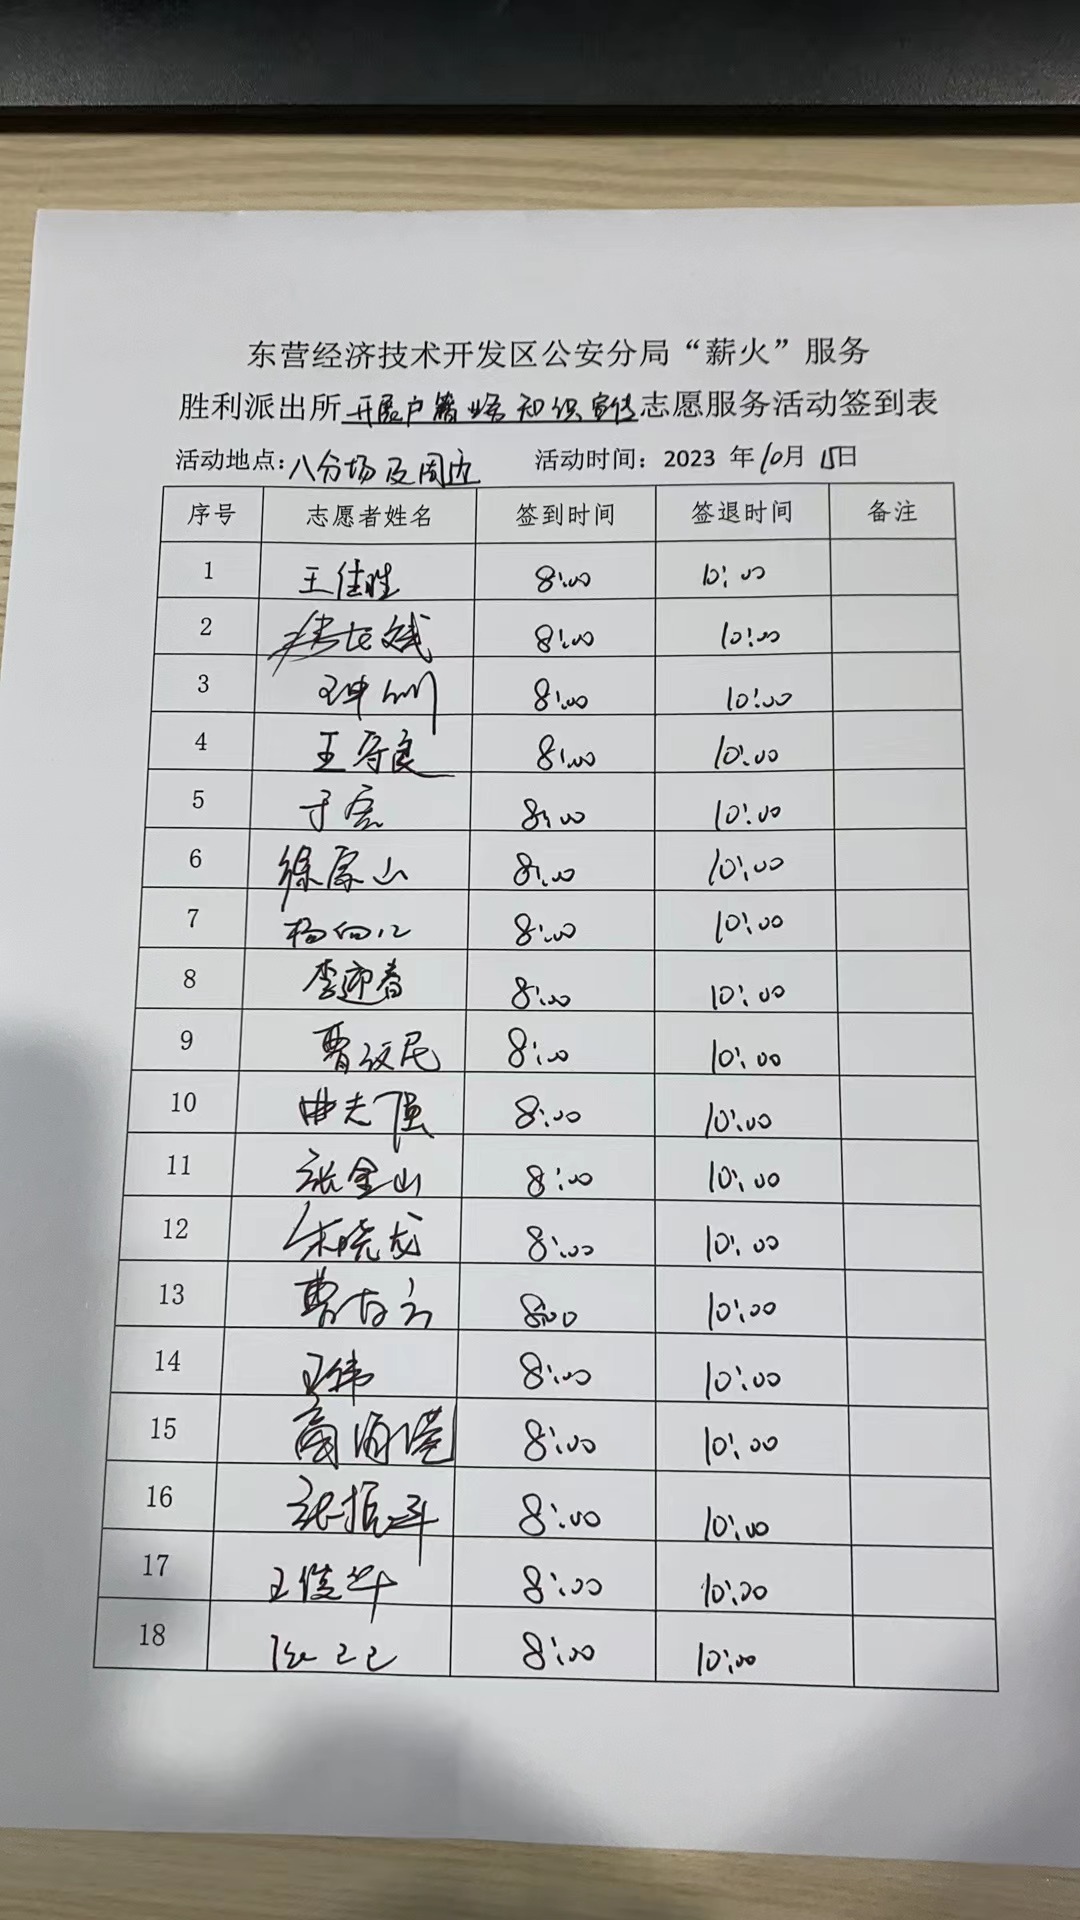 东营经济技术开发区公安分局“薪火”服务
胜利派出所开展户籍业务知识宣传志愿服务活动签到表
活动地点:八分场及周边 活动时间:2023 年10月15日
序号 志愿者姓名 签到时间 签退时间 备注
1 王佳胜 8:00 10:00
2 8:00 10:00
3 王坤 8:00 10:00
4 王守良 8:00 10:00
5 于亮 8:00 10:00
6 徐家山 8:00 10:00
7 杨向江 8:00 10:00
8 李迎春 8:00 10:00
9 曹政民 8:00 10:00
10 曲志强 8:00 10:00
11 张金山 8:00 10:00
12 朱晓龙 8:00 10:00
13 曹 8:00 10:00
14 王伟 8:00 10:00
15 8:00 10:00
16 张振 8:00 10:00
17 王俊华 8:00 10:00
18 8:00 10:00